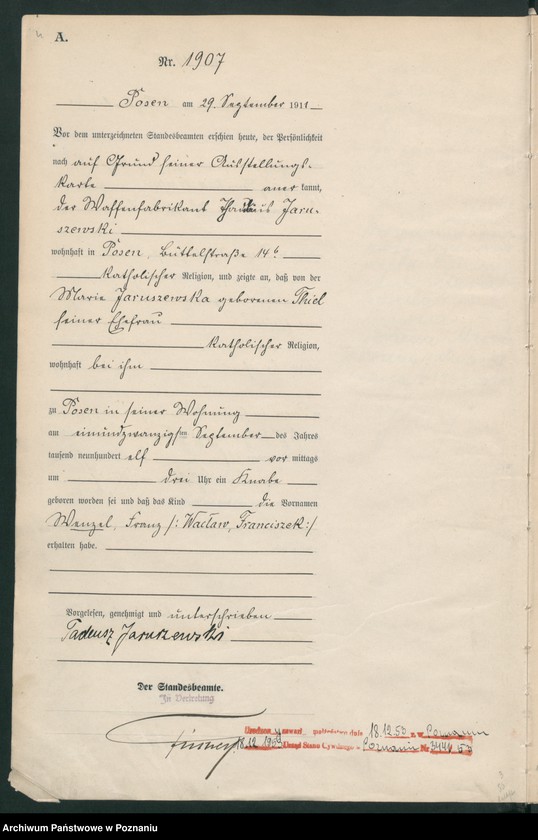 A.
Nr. 1907
Posen am 29. September 1911
Vor dem unterzeichneten Standesbeamten erschien heute, der Persönlichkeit
nach auf Grund seiner Ausstellungs-
karte aner kannt,
der Waffenfabrikant Jaru-
szewski
wohnhaft in Posen, Büttelstraße 14
katholischer Religion, und zeigte an, daß von der
Marie Jaruszewska geborenen Thiel
seiner Ehefrau
katholischer Religion,
wohnhaft bei ihm
zu Posen in seiner Wohnung
am einundzwanzigsten September des Jahres
tausend neunhundert elf vor mittags
um drei Uhr ein Knabe
geboren worden sei und daß das Kind die Vornamen
Wenzel, Franz /: Wacław, Franciszek :/
erhalten habe.
Vorgelesen, genehmigt und unterschrieben
Tadeusz Jaruszewski
Der Standesbeamte.
In Vertretung
zawarł małżeństwo dnia 18.12.50 r. w Poznaniu
Urząd Stanu Cywilnego Poznaniu Nr
Archiwum Państwowe w Poznaniu